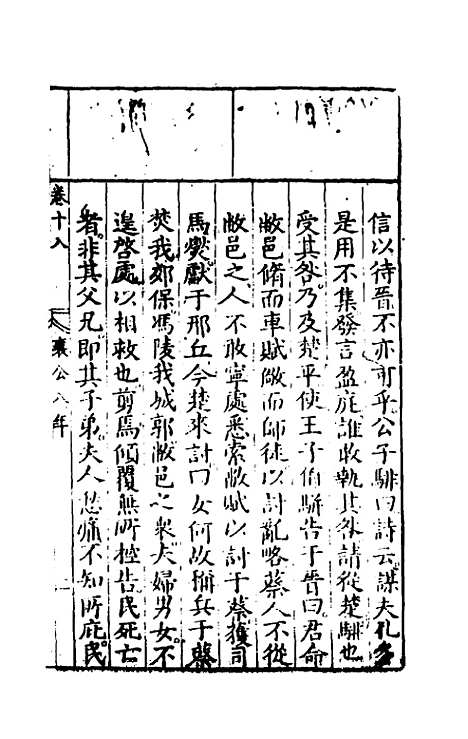 信以待晉不亦可乎公子騑曰詩云謀夫孔多
是用不集發言盈庭誰敢執其咎請從楚騑也
受其咎乃及楚平使王子伯騈告于晉曰君命
敝邑脩而車賦儆而師徒以討亂略蔡人不從
敝邑之人不敢寧處悉索敝賦以討于蔡獲司
馬燮獻于邢丘今楚來討曰女何故稱兵于蔡
焚我郊保馮陵我城郭敝邑之衆夫婦男女不
遑啓處以相救也剪焉傾覆無所控告民死亡
者非其父兄即其子弟夫人愁痛不知所庇民
卷十八 襄公八年